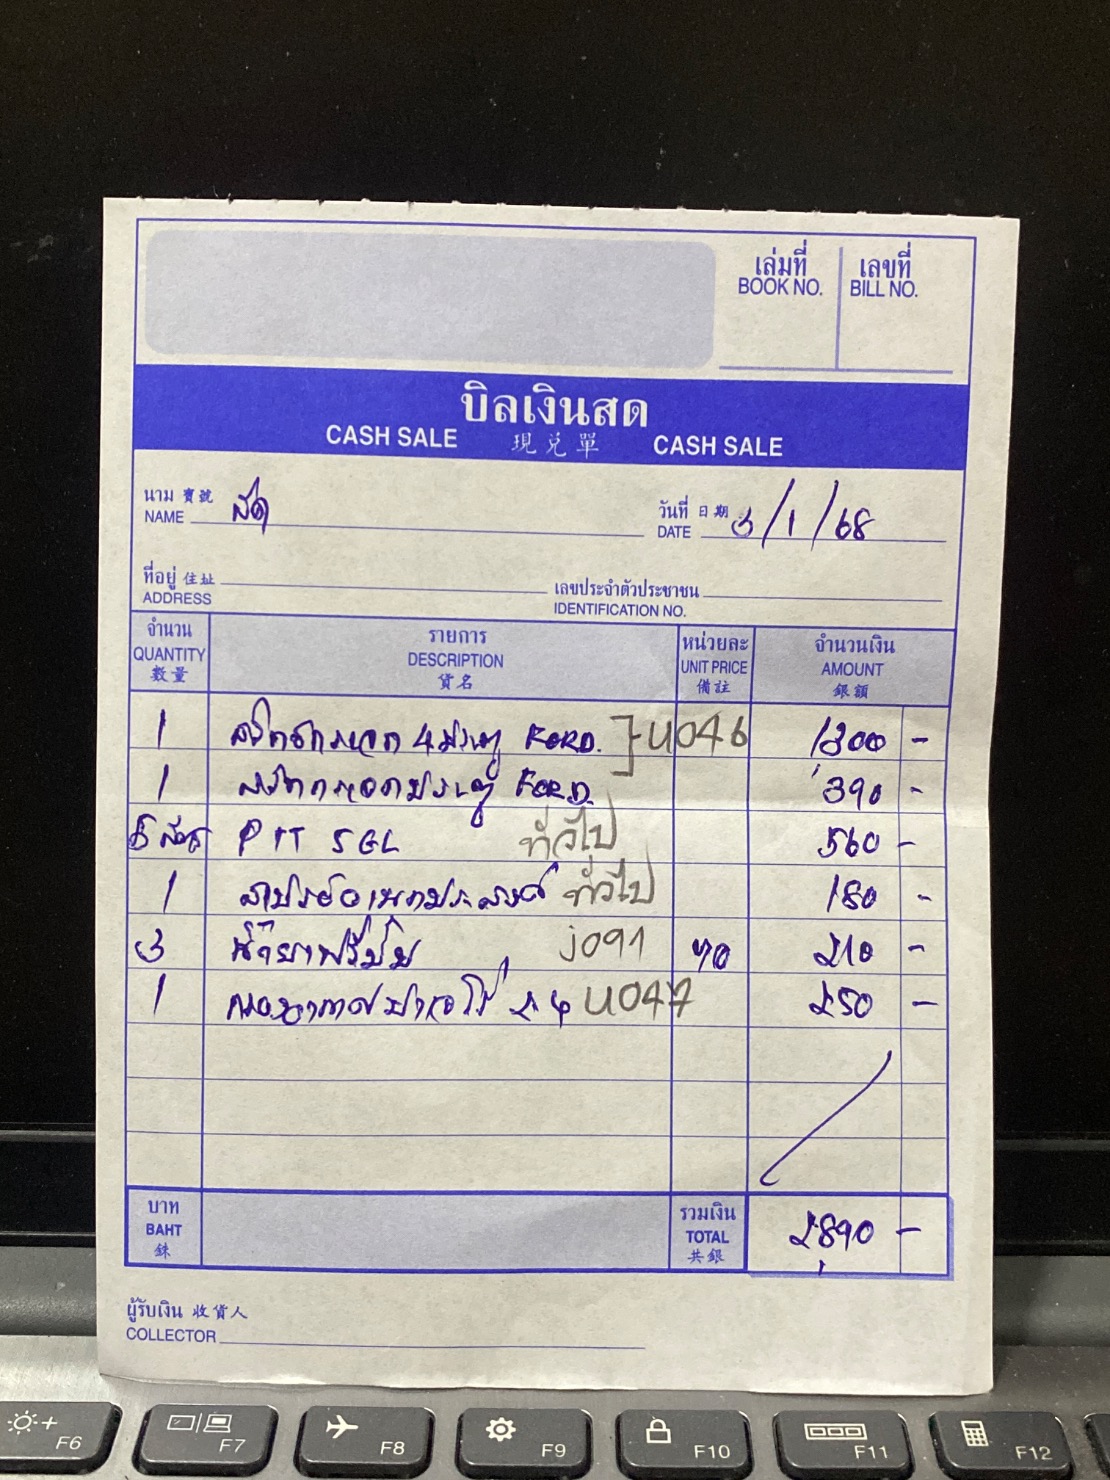 เล่มที่ เลขที่
BOOK NO. BILL NO.
บิลเงินสด
CASH SALE 現兌單 CASH SALE
นาม 寶號 วันที่ 日期
NAME สด DATE 3/1/68
ที่อยู่ 住址 เลขประจำตัวประชาชน
ADDRESS IDENTIFICATION NO.
จำนวน รายการ หน่วยละ จำนวนเงิน
QUANTITY DESCRIPTION UNIT PRICE AMOUNT
數量 貨名 備註 銀額
1 4 ประตู FORD. U046 1300 -
1 ประตู FORD. 390 -
5 PTT 5GL ทั่วไป 560 -
1 สเปรย์อเนกประสงค์ ทั่วไป 180 -
3 น้ำยา J091 70 210 -
1 U047 250 -
บาท รวมเงิน
BAHT TOTAL 2890 -
銖 共銀
ผู้รับเงิน 收貨人
COLLECTOR
F6 F7 F8 F9 F10 F11 F12